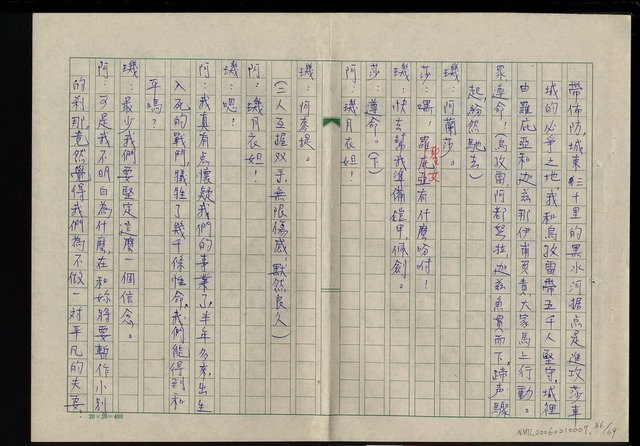 帶佈防，城東三十里的黑水河據点是進攻莎車
城的必爭之地，我和烏孜雷帶五千人堅守，城裡
由羅庇亞和迦茲那伊甫負責，大家馬上行動。
眾：遵命！（烏孜雷，阿都拉，迦茲魚貫而下，蹄声驟
起，紛然馳去）
璣：阿蘭莎。
莎：嘿！羅庇亞有什麼吩咐！
聖女
璣：快去幫我準備鎧甲佩劍。
莎：遵命。（下）
阿：璣月衣妲！
璣：阿麥提。
（二人互握双手，無限傷感，默然良久）
阿：璣月衣妲！
璣：嗯！
阿：我真有点懷疑我們的事業了，半年多來，出生
入死的戰鬥，犧牲了幾千條性命，我們能得到和
平嗎？
璣：最少我們要堅定這麼一個信念。
阿：可是我不明白為什麼，在和妳將要暫作小別
的刹那，竟然覺得我們為不做一对平凡的夫妻
20×20=400
NMTL20060210007 36/69